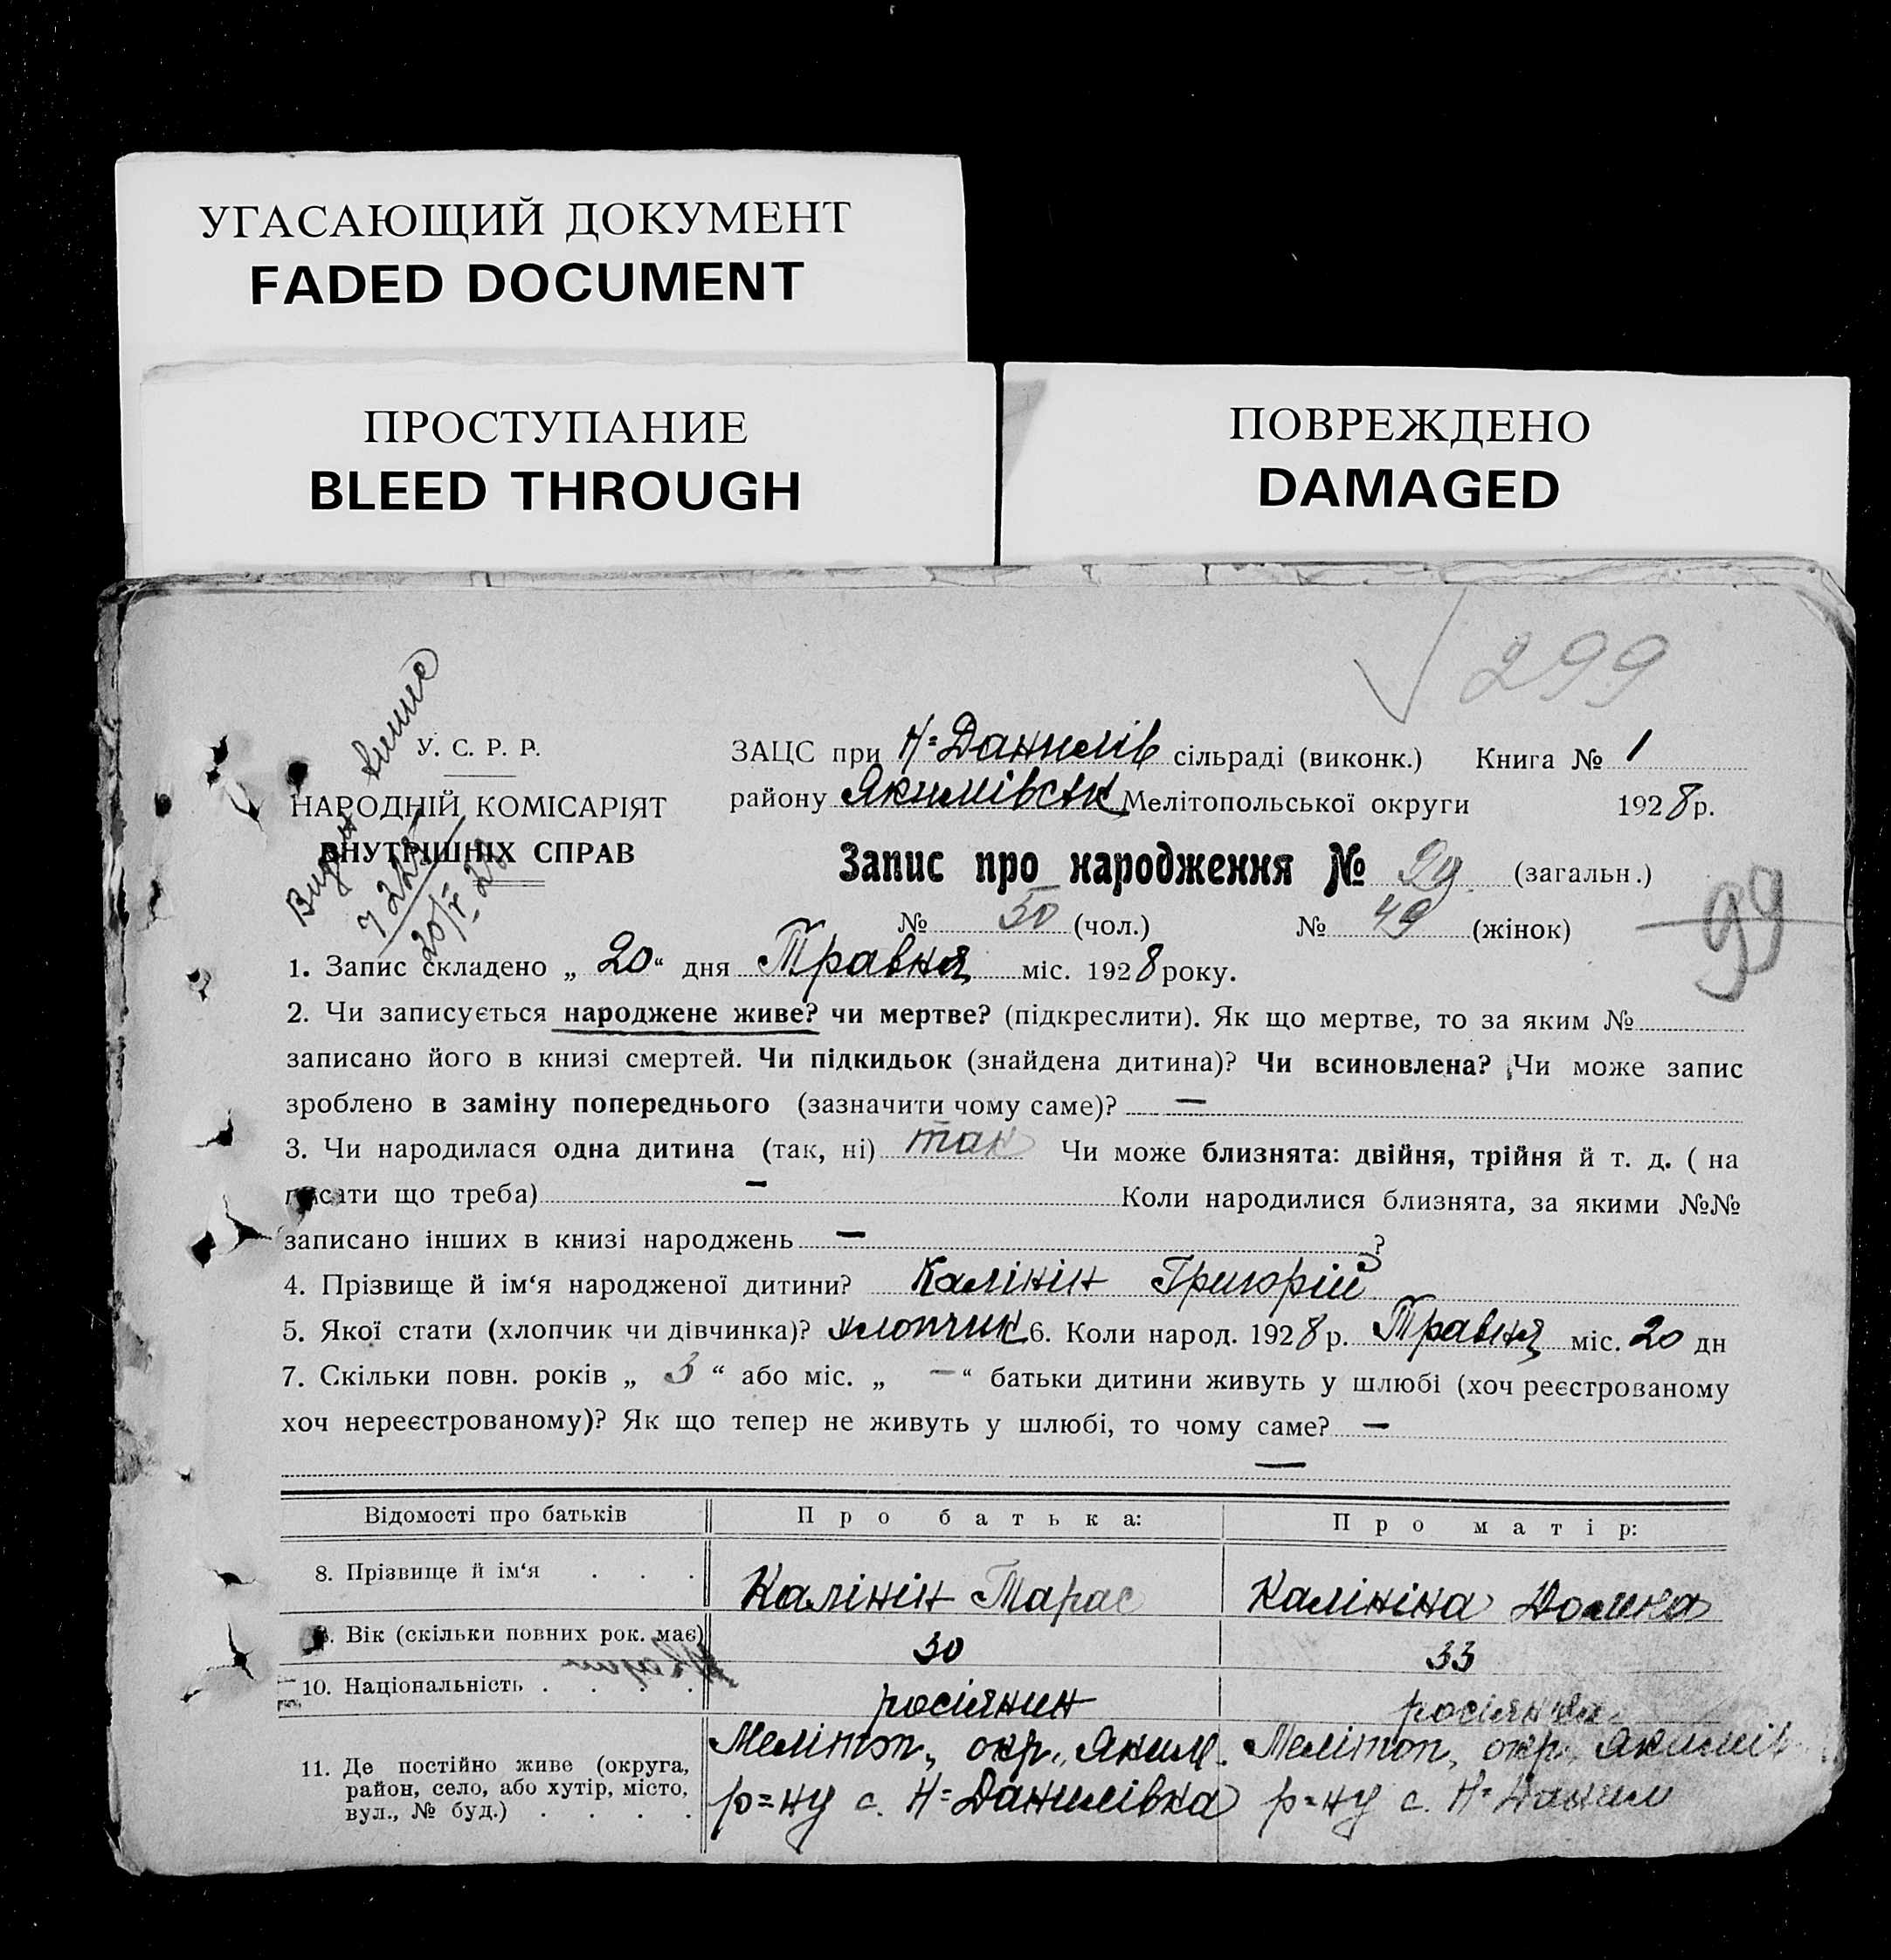 УГАСАЮЩИЙ ДОКУМЕНТ
FADED DOCUMENT
ПРОСТУПАНИЕ
BLEED THROUGH
ПОВРЕЖДЕНО
DAMAGED
299
У. С. Р. Р.
НАРОДНІЙ КОМІСАРІЯТ
ВНУТРІШНІХ СПРАВ
ЗАЦС при Н=Данилів сільраді (виконк.) Книга № 1
району Якимівськ Мелітопольської округи 1928 р.
Запис про народження № 99 (загальн.)
99
№ 50 (чол.) № 49 (жінок)
1. Запис складено „ 20 “ дня Травня міс. 1928 року.
2. Чи записується народжене живе? чи мертве? (підкреслити). Як що мертве, то за яким №
записано його в книзі смертей. Чи підкидьок (знайдена дитина)? Чи всиновлена? Чи може запис
зроблено в заміну попереднього (зазначити чому саме)? —
3. Чи народилася одна дитина (так, ні) так Чи може близнята: двійня, трійня й т. д. ( на
писати що треба) — Коли народилися близнята, за якими №№
записано інших в книзі народжень — ?
4. Прізвище й ім‘я народженої дитини? Калінін Григорій
5. Якої стати (хлопчик чи дівчинка)? хлопчик 6. Коли народ. 1928 р. Травня міс. 20 дн
7. Скільки повн. років „ 3 “ або міс. „ — “ батьки дитини живуть у шлюбі (хоч реєстрованому
хоч нереєстрованому)? Як що тепер не живуть у шлюбі, то чому саме? —
—
Відомості про батьків Про батька: Про матір:
8. Прізвище й ім‘я . . . Калінін Тарас Калініна Домна
9. Вік (скільки повних рок. має) 30 33
10. Національність . . . . росіянин росіянка
11. Де постійно живе (округа,
район, село, або хутір, місто,
вул., № буд.) . . . .
Мелітоп, окр., Яким.
р=ну с. Н=Данилівка
Мелітоп, окр. Якимів
р=ну с. Н=Данил